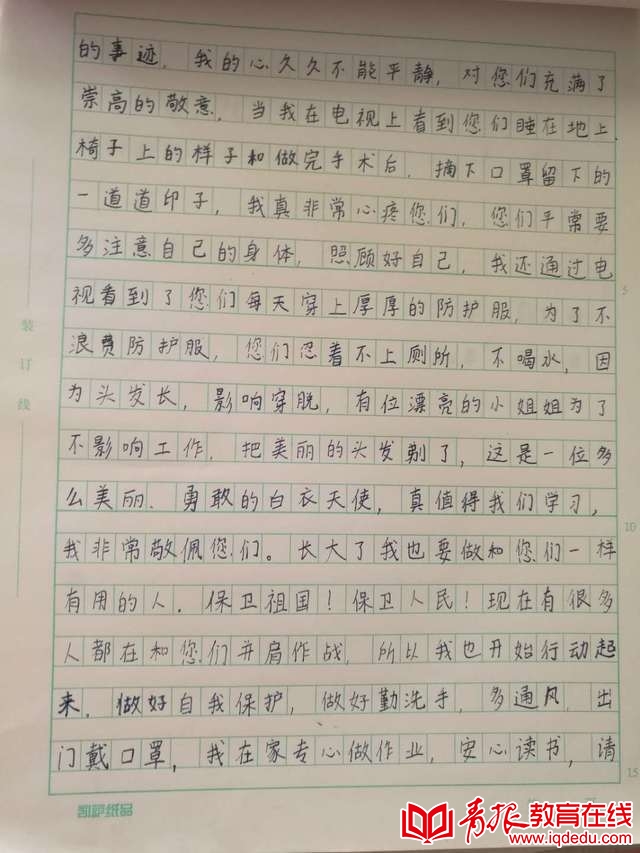 的事迹，我的心久久不能平静，对您们充满了
崇高的敬意，当我在电视上看到您们睡在地上
椅子上的样子和做完手术后，摘下口罩留下的
一道道印子，我真非常心疼您们，您们平常要
多注意自己的身体，照顾好自己，我还通过电
视看到了您们每天穿上厚厚的防护服，为了不
浪费防护服，您们忍着不上厕所，不喝水，因
为头发长，影响穿脱，有位漂亮的小姐姐为了
不影响工作，把美丽的头发剃了，这是一位多
么美丽．勇敢的白衣天使，真值得我们学习，
我非常敬佩您们。长大了我也要做和您们一样
有用的人．保卫祖国！保卫人民！现在有很多
人都在和您们并肩作战，所以我也开始行动起
来．做好自我保护，做好勤洗手，多通风，出
门戴口罩，我在家专心做作业，安心读书，请
装订线
5
10
15
凯萨纸品
青报教育在线
www.iqdedu.com